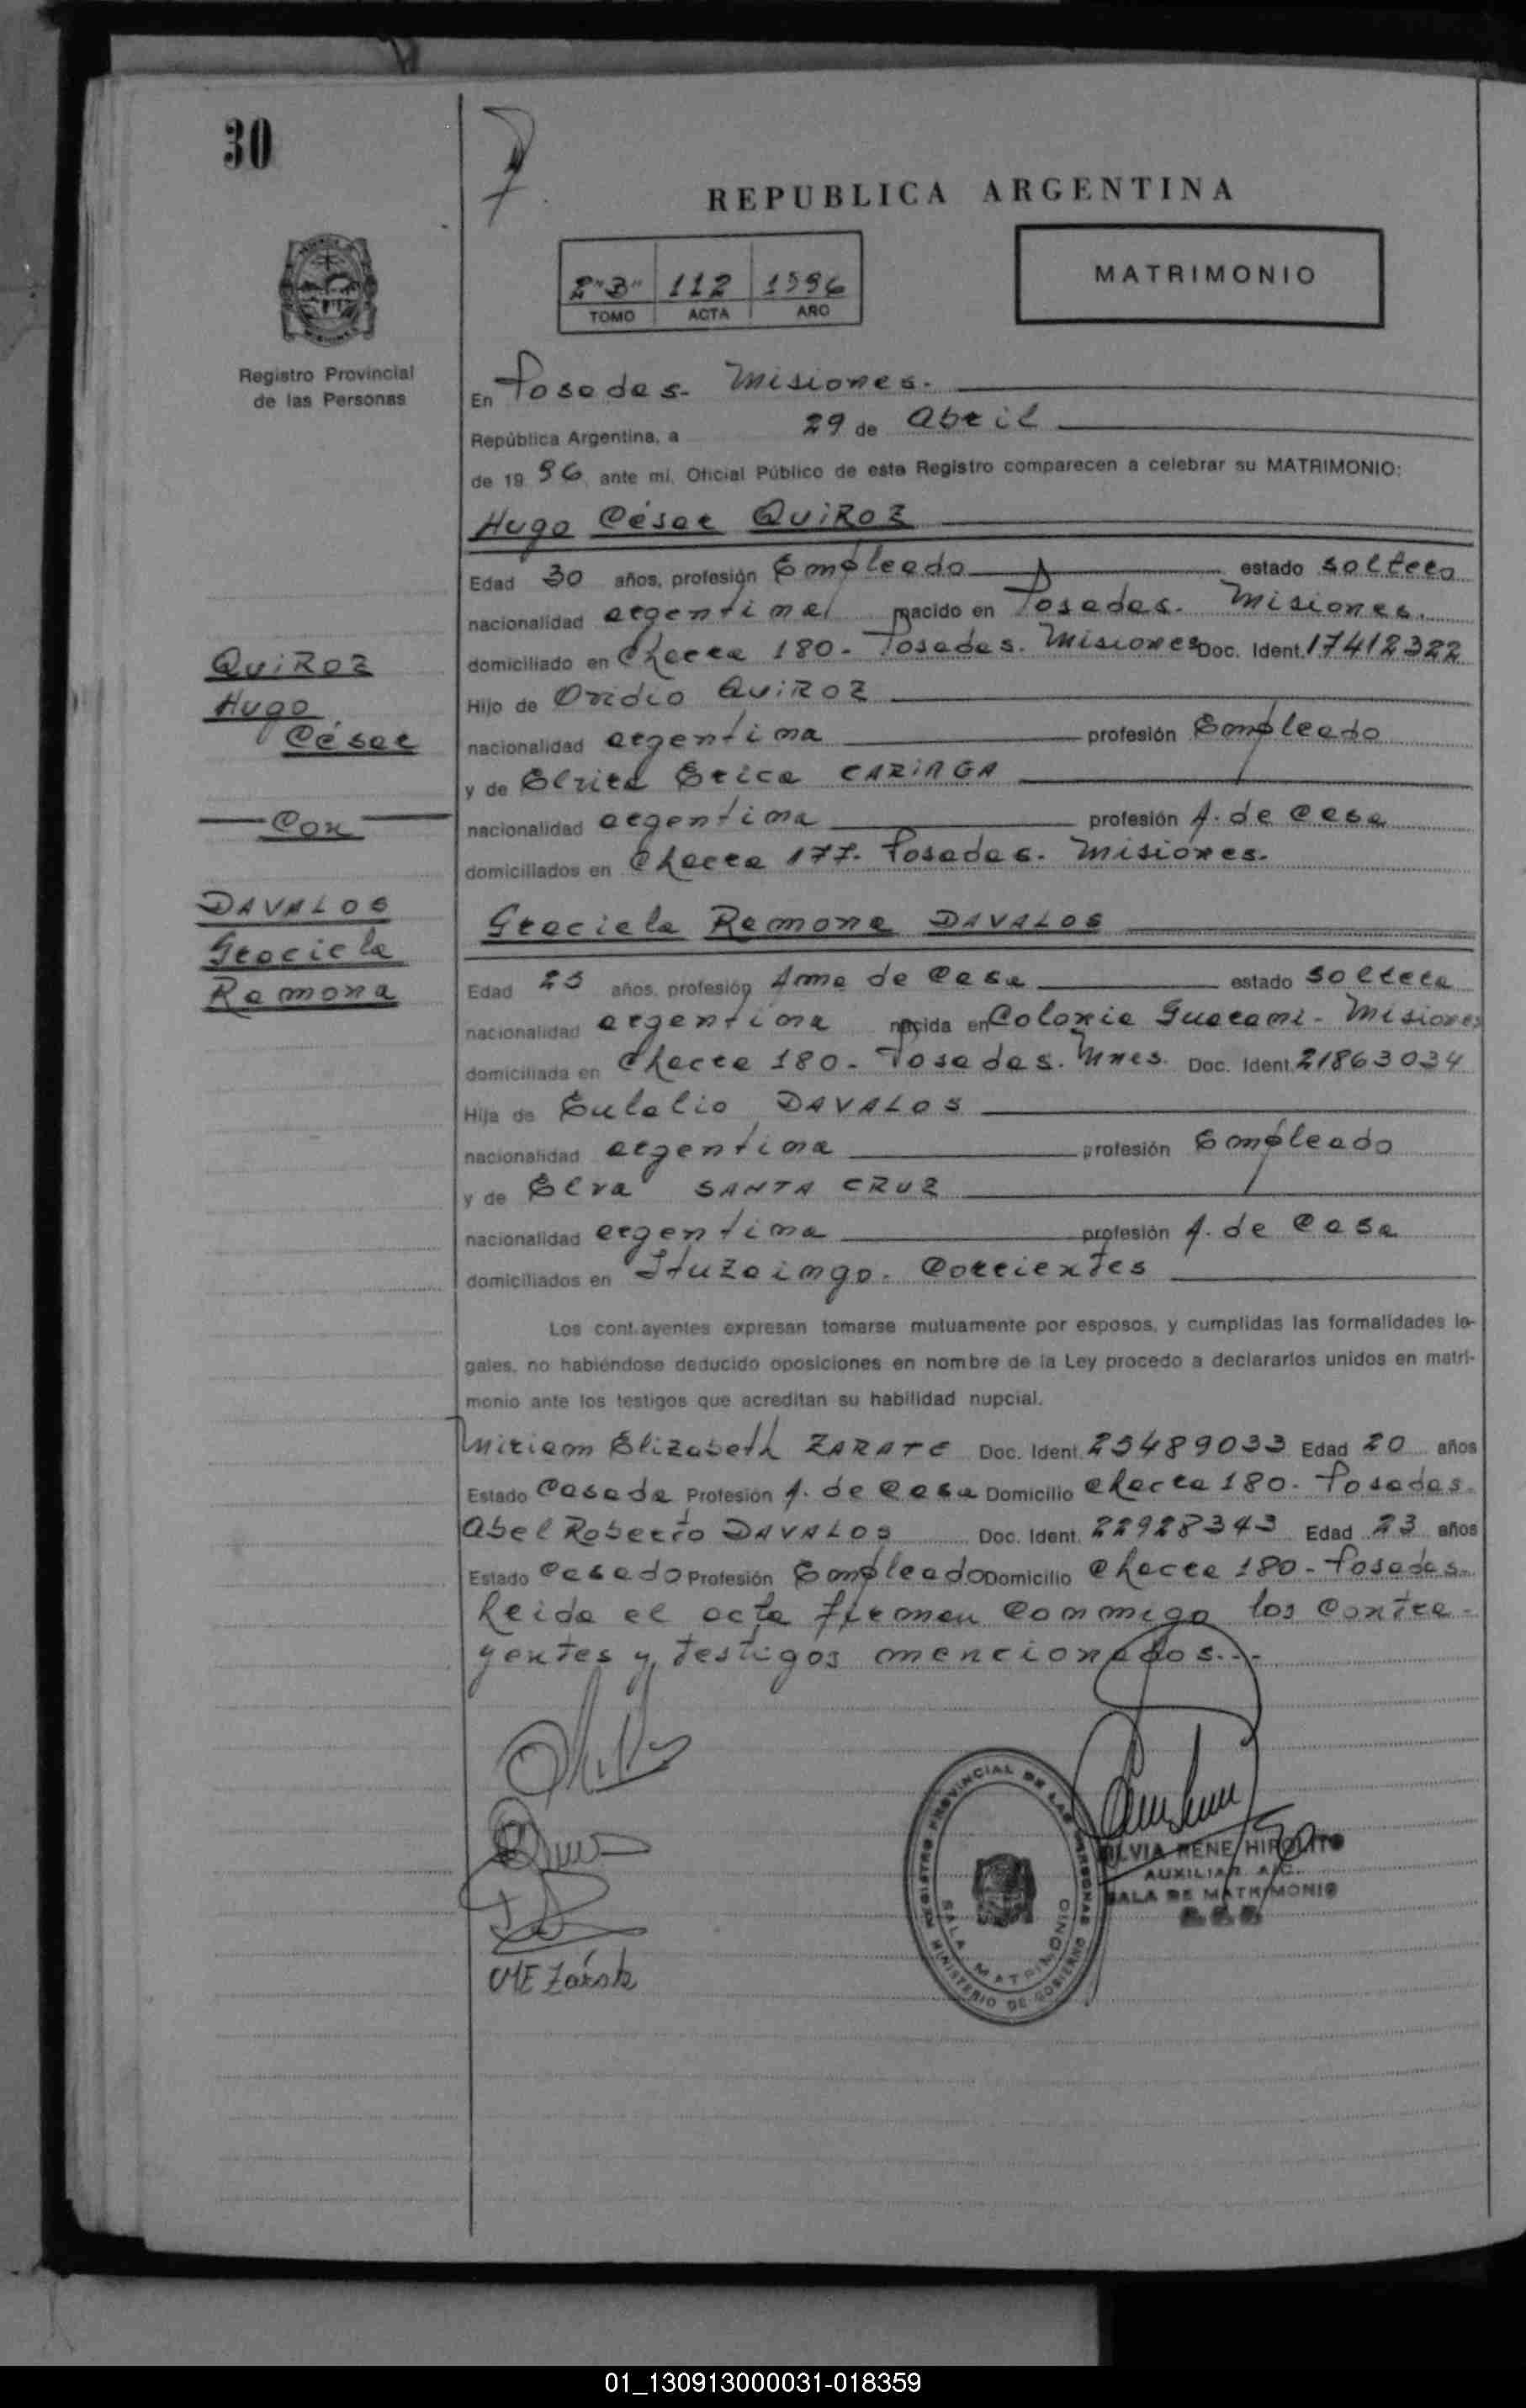 30
REPUBLICA ARGENTINA
2"B" 112 1996
TOMO ACTA AÑO
MATRIMONIO
Registro Provincial
de las Personas
En Posadas. Misiones.
República Argentina, a 29 de Abril
de 1996, ante mí, Oficial Público de este Registro comparecen a celebrar su MATRIMONIO:
Hugo César QUIROZ
Edad 30 años, profesión Empleado estado soltero
nacionalidad argentina nacido en Posadas. Misiones.
domiciliado en Chacra 180. Posadas. Misiones Doc. Ident. 17412322
Hijo de Ovidio QUIROZ
nacionalidad argentina profesión Empleado
y de Elvira Erica CARIAGA
nacionalidad argentina profesión A. de Casa
domiciliados en Chacra 177. Posadas. Misiones.
QUIROZ
Hugo
César
Con
DAVALOS
Graciela
Ramona
Graciela Ramona DAVALOS
Edad 25 años, profesión Ama de Casa estado soltera
nacionalidad argentina nacida en Colonia Guarani - Misiones
domiciliada en Chacra 180. Posadas. Mnes. Doc. Ident. 21863034
Hija de Eulalio DAVALOS
nacionalidad argentina profesión Empleado
y de Elva SANTA CRUZ
nacionalidad argentina profesión A. de Casa
domiciliados en Ituzaingo. Corrientes
Los contrayentes expresan tomarse mutuamente por esposos, y cumplidas las formalidades le-
gales, no habiéndose deducido oposiciones en nombre de la Ley procedo a declararlos unidos en matri-
monio ante los testigos que acreditan su habilidad nupcial.
Miriam Elizabeth ZARATE Doc. Ident. 25489033 Edad 20 años
Estado Casada Profesión A. de Casa Domicilio Chacra 180. Posadas.
Abel Roberto DAVALOS Doc. Ident. 22928343 Edad 23 años
Estado Casado Profesión Empleado Domicilio Chacra 180 - Posadas.
Leida el acta firman conmigo los contra-
yentes y testigos mencionados...
REGISTRO PROVINCIAL DE LAS PERSONAS
SALA MATRIMONIO
MINISTERIO DE GOBIERNO
SILVIA RENE HIPOLITO
AUXILIAR A/C.
SALA DE MATRIMONIO
ME Zárate
01_130913000031-018359